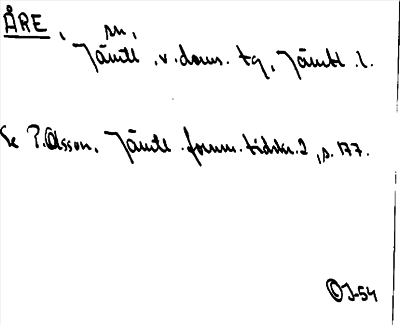 ÅRE, sn,
Jämtl. v. doms. tg, Jämtl. l.
Se P. Olsson, Jämtl. fornm. tidskr. 2, s. 177.
OJ-54